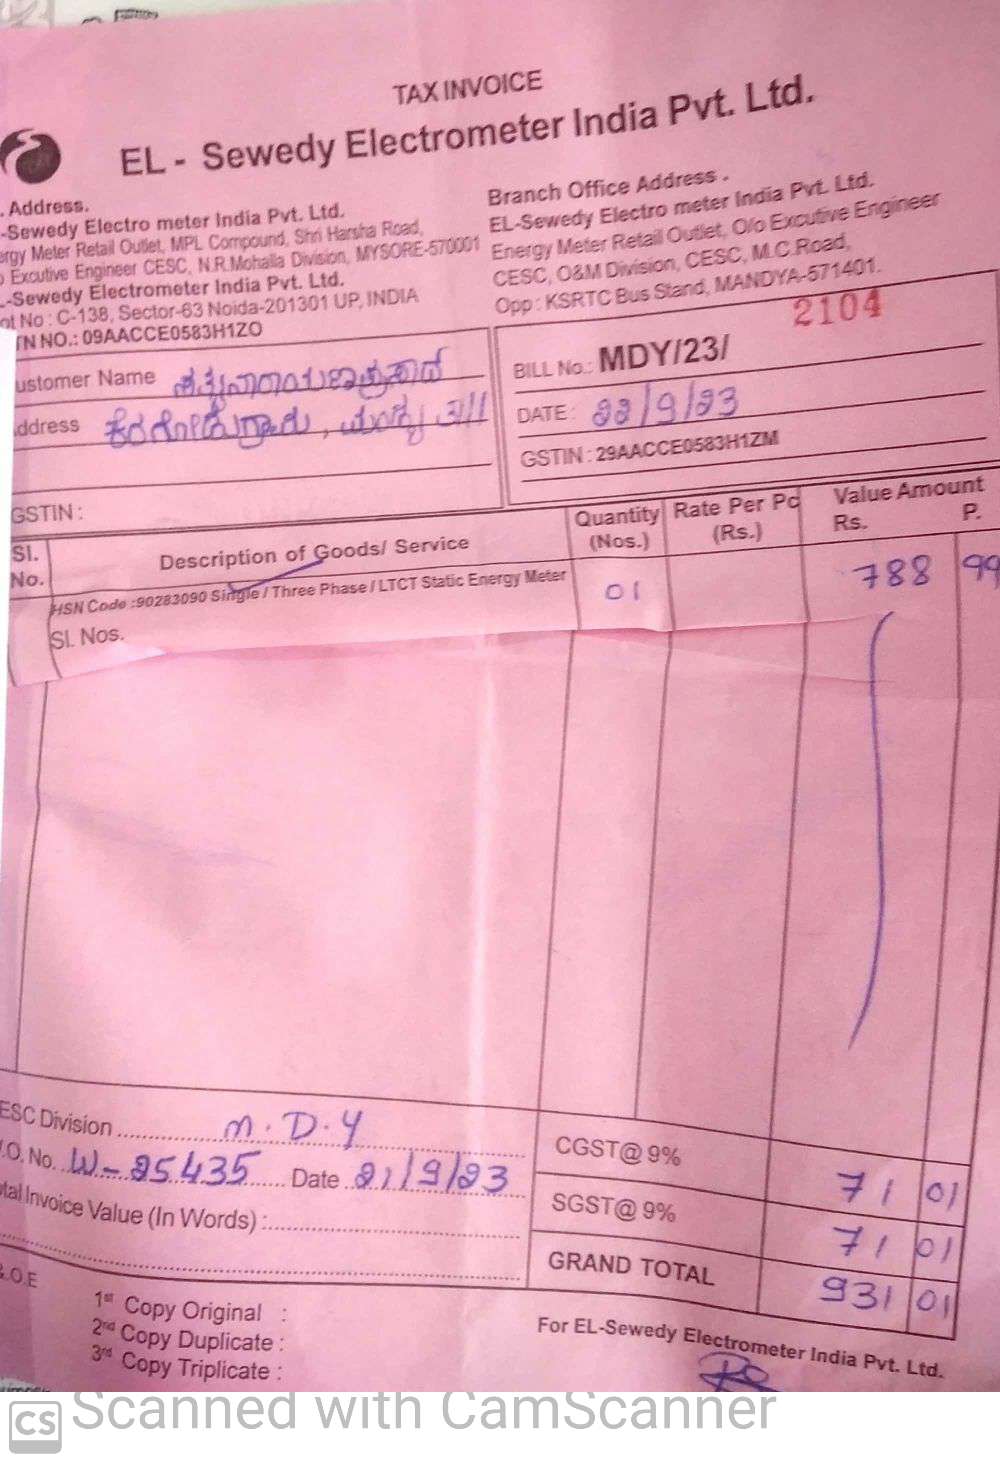 TAX INVOICE
EL - Sewedy Electrometer India Pvt. Ltd.
. Address.
-Sewedy Electro meter India Pvt. Ltd.
ergy Meter Retail Outlet, MPL Compound, Shri Harsha Road,
Excutive Engineer CESC, N.R.Mohalla Division, MYSORE-570001
-Sewedy Electrometer India Pvt. Ltd.
ot No : C-138, Sector-63 Noida-201301 UP, INDIA
TN NO.: 09AACCE0583H1ZO
Branch Office Address .
EL-Sewedy Electro meter India Pvt. Ltd.
Energy Meter Retail Outlet, O/o Excutive Engineer
CESC, O&M Division, CESC, M.C.Road,
Opp : KSRTC Bus Stand, MANDYA-571401.
2104
ustomer Name
ddress
GSTIN :
BILL No.: MDY/23/
DATE : 22/9/23
GSTIN : 29AACCE0583H1ZM
Sl. No. Description of Goods/ Service Quantity (Nos.) Rate Per Pc (Rs.) Value Amount Rs. P.
HSN Code :90283090 Single / Three Phase / LTCT Static Energy Meter 01 788 99
Sl. Nos.
ESC Division M.D.Y
.O. No. W-25435 Date 21/9/23
tal Invoice Value (In Words) :
CGST@ 9% 71 01
SGST@ 9% 71 01
GRAND TOTAL 931 01
.O.E
1st Copy Original :
2nd Copy Duplicate :
3rd Copy Triplicate :
For EL-Sewedy Electrometer India Pvt. Ltd.
CS Scanned with CamScanner